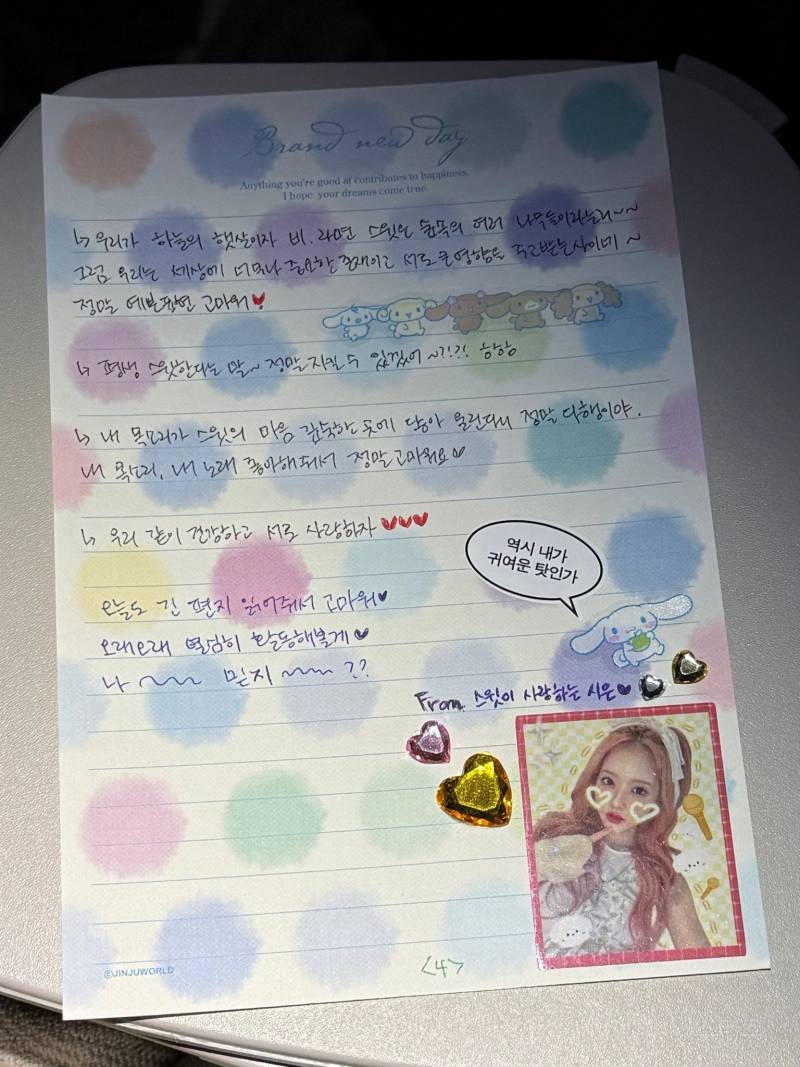 Brand new day
Anything you're good at contributes to happiness.
I hope your dreams come true.
↳ 우리가 하늘의 햇살이자 비. 라면 스윗은 숲속의 여러 나무들이라눙거~~
그럼 우리는 세상에 너무나 중요한 존재이고 서로 큰 영향을 주고받는 사이네 ~
정말 예쁜 표현 고마워♥
↳ 평생 스윗한다는 말~ 정말 지킬 수 있겠어~?!?! ㅎㅎㅎ
↳ 내 목소리가 스윗의 마음 깊숙한 곳에 닿아 울린다니 정말 다행이야.
내 목소리, 내 노래 좋아해줘서 정말 고마워요♡
↳ 우리 같이 건강하고 서로 사랑하자 ♥♥♥
역시 내가
귀여운 탓인가
오늘도 긴 편지 읽어줘서 고마워♥
오래오래 열심히 활동해볼게♥
나 ~~~ 믿지 ~~~ ??
From. 스윗이 사랑하는 시은♥
©JINJUWORLD
<4>